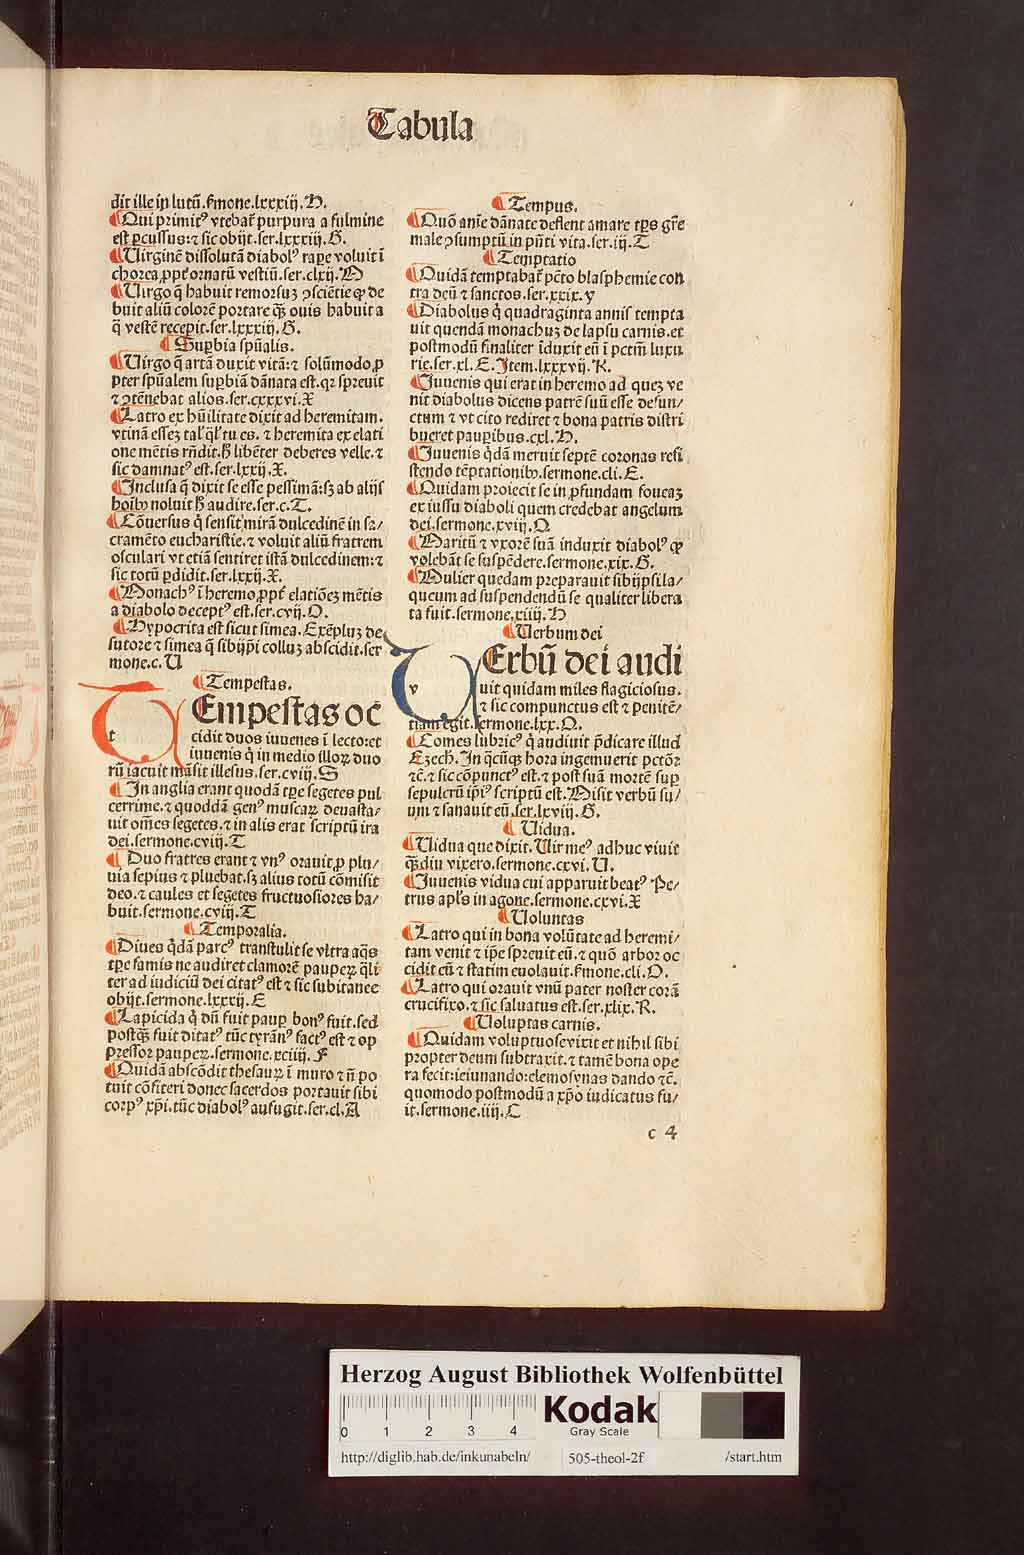 Tabula
dit ille in lutū. ẜmone.lxxxiij.H.
¶Qui primitꝰ vtebat᷑ purpura a fulmine
est ꝑcussus: ⁊ sic obijt.ser.lxxxiij.G.
¶Virginē dissolutā diabolꝰ rape voluit ī
chorea ꝓpt̓ ornatū vestiū.ser.clxij.N
¶Virgo q̄ habuit remorsuꝫ ꝯsciētie ꝙ de
buit aliū colorē portare q̄ꝫ ouis habuit a
q̄ vestē recepit.ser.lxxxiij.G.
¶Suꝑbia spūalis.
¶Virgo q̄ artā duxit vitā: ⁊ solūmodo ꝓ
pter spūalem suꝑbiā dānata est. qꝛ spreuit
⁊ ꝯtēnebat alios.ser.cxxxvi.X
¶Latro ex hūilitate dixit ad heremitam.
vtinā esseꝫ tal̓ q̄l̓ tu es. ⁊ heremita ex elati
one mētis rn̄dit. ꝧ libēter deberes velle. ⁊
sic damnatꝰ est.ser.lxxij.X.
¶Inclusa q̄ dixit se esse pessimā: sꝫ ab alijs
hoībꝫ noluit ꝧ audire.ser.c.T.
¶Cōuersus q̄ sensit mirā dulcedinē in sa/
cramēto eucharistie. ⁊ voluit aliū fratrem
osculari vt etiā sentiret istā dulcedinem: ⁊
sic totū ꝑdidit.ser.lxxij.X.
¶Monachꝰ ī heremo ꝓpt̓ elatiōeꝫ mētis
a diabolo deceptꝰ est.ser.cvij.O.
¶Hypocrita est sicut simea. Exēpluꝫ de
sutore ⁊ simea q̄ sibijp̄i colluꝫ abscidit.ser
mone.c.V
¶Tempestas.
t
Empestas oc
cidit duos iuuenes ī lecto: et
iuuenis q̄ in medio illoꝝ duo
rū iacuit māsit illesus.ser.cviij.S
¶In anglia erant quodā tꝑe segetes pul
cerrime. ⁊ quoddā genꝰ muscaꝝ deuasta/
uit om̄es segetes. ⁊ in alis erat scriptū ira
dei.sermone.cviij.T
¶Duo fratres erant ⁊ vnꝰ orauit ꝓ plu/
uia sepius ⁊ pluebat. sꝫ alius totū cōmisit
deo. ⁊ caules et segetes fructuosiores ha/
buit.sermone.cviij.T
¶Temporalia.
¶Diues q̄dā parcꝰ transtulit se vltra aq̄s
tꝑe famis ne audiret clamorē pauperꝝ q̄li
ter ad iudiciū dei citatꝰ est ⁊ sic subitanee
obijt.sermone.lxxxij.E
¶Lapicida q̄ dū fuit pauꝑ bonꝰ fuit. sed
postq̄ꝫ fuit ditatꝰ tūc tyrānꝰ factꝰ est ⁊ op
pressor pauperꝝ.sermone.xciiij.F
¶Quidā abscōdit thesauꝝ ī muro ⁊ n̄ po
tuit cōfiteri donec sacerdos portauit sibi
corpꝰ xp̄i. tūc diabolꝰ aufugit.ser.cl.A
¶Tempus.
¶Quō anīe dānate deflent amare tꝑs gr̄e
male ꝯsumptū in pn̄ti vita.ser.iij.T
¶Temptatio
¶Quidā temptabat᷑ pctō blasphemie con
tra deū ⁊ sanctos.ser.xxix.y
¶Diabolus q̄ quadraginta annis tempta
uit quendā monachuꝫ de lapsu carnis. et
postmodū finaliter īduxit eū ī pctm̄ luxu
rie.ser.xl.E. Item.lxxxvij.R.
¶Iuuenis qui erat in heremo ad queꝫ ve
nit diabolus dicens patrē suū esse defun/
ctum ⁊ vt cito rediret ⁊ bona patris distri
bueret pauꝑibus.cxl.H.
¶Iuuenis q̄dā meruit septē coronas resi
stendo tēptationibꝫ.sermone.cli.E.
¶Quidam proiecit se in ꝓfundam foueaꝫ
ex iussu diaboli quem credebat angelum
dei.sermone.xviij.O
¶Maritū ⁊ vxorē suā induxit diabolꝰ ꝙ
volebāt se suspēdere.sermone.xix.G.
¶Mulier quedam preparauit sibijpsi la/
queum ad suspendendū se qualiter libera
ta fuit.sermone.xiiij.H
¶Verbum dei
v
Erbū dei audi
uit quidam miles flagiciosus.
⁊ sic compunctus est ⁊ penitē/
tiam egit.sermone.lxx.O.
¶Comes lubricꝰ q̄ audiuit p̄dicare illud
Ezech. In q̄cūqꝫ hora ingemuerit pctōr
⁊c̄. ⁊ sic cōpunctꝰ est. ⁊ post suā mortē suꝑ
sepulcrū ip̄iꝰ scriptū est. Misit verbū su/
um ⁊ sanauit eū.ser.lxviij.G.
¶Vidua.
¶Vidua que dixit. Vir meꝰ adhuc viuit
q̄ꝫdiu vixero.sermone.cxvi.V.
¶Iuuenis vidua cui apparuit beatꝰ Pe/
trus apl̄s in agone.sermone.cxvi.X
¶Voluntas
¶Latro qui in bona volūtate ad heremi/
tam venit ⁊ ip̄e spreuit eū. ⁊ quō arbor oc
cidit eū ⁊ statim euolauit. ẜmone.cli.O.
¶Latro qui orauit vnū pater noster corā
crucifixo. ⁊ sic saluatus est.ser.xlix.R.
¶Voluptas carnis.
¶Quidam voluptuose vixit et nihil sibi
propter deum subtraxit. ⁊ tamē bona ope
ra fecit: ieiunando: elemosynas dando ⁊c̄.
quomodo postmodū a xp̄o iudicatus fu/
it.sermone.iiij.C
c 4
Herzog August Bibliothek Wolfenbüttel
0 1 2 3 4
Kodak
Gray Scale
http://diglib.hab.de/inkunabeln/ 505-theol-2f /start.htm